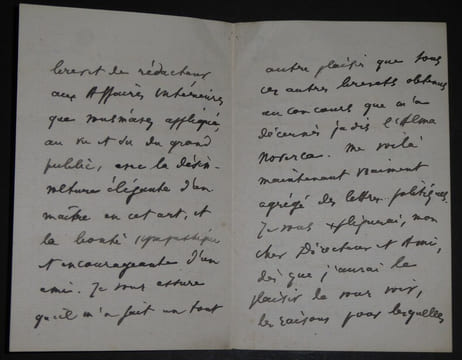 brevet de rédacteur
aux Affaires intérieures
que vous m'avez appliqué,
au vu et su du grand
public, avec la désin-
volture élégante d'un
maître en cet art, et
la bonté sympathique
et encourageante d'un
ami. Je vous assure
qu'il m'a fait un tout
autre plaisir que tous
ces autres brevets obtenus
au concours que m'a
décernés jadis l'Alma
Me voilà
maintenant vraiment
agrégé des lettres politiques.
Je vous expliquerai, mon
cher Directeur et Ami,
dès que j'aurai le
plaisir de vous voir,
les raisons pour lesquelles